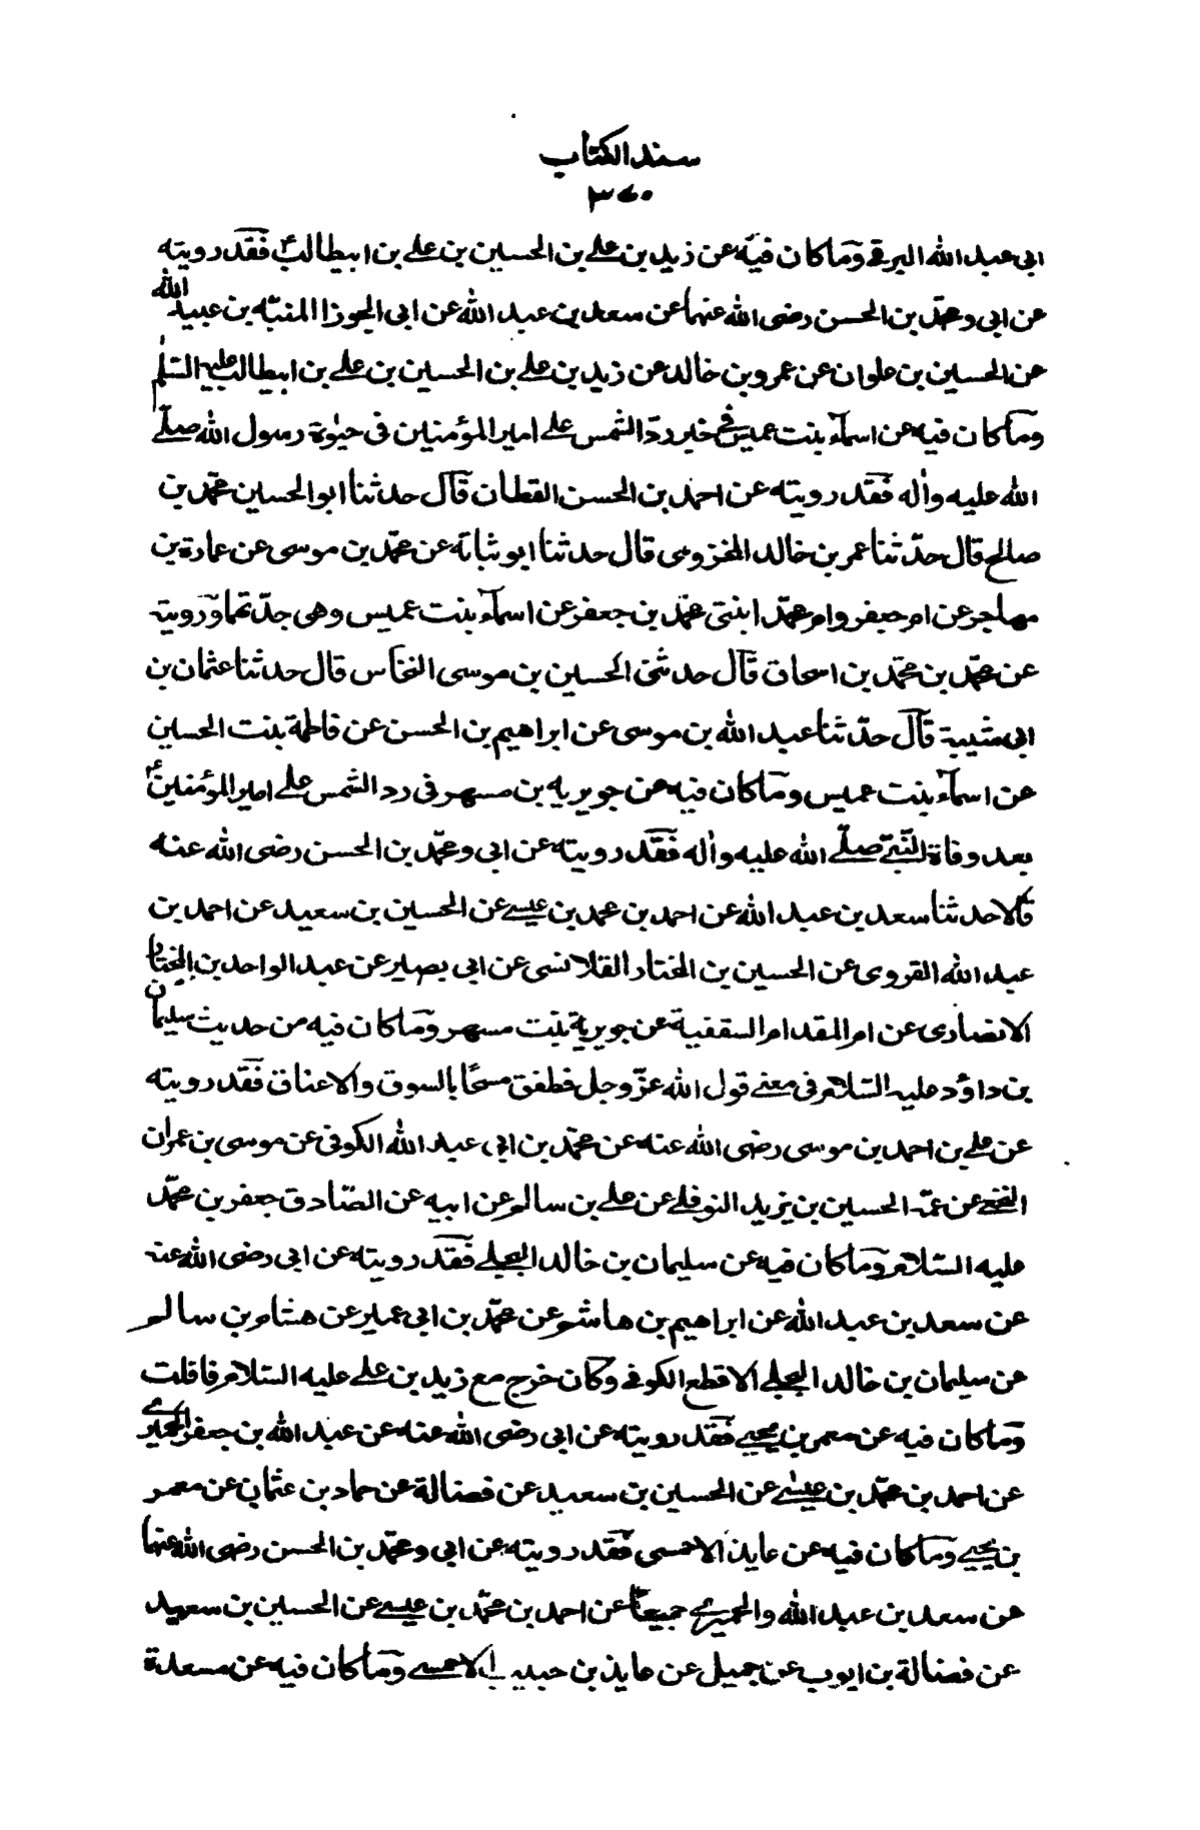 سند الكتاب
٣٧٠
ابى عبد الله البرقى وما كان فيه عن زيد بن على بن الحسين بن على بن ابيطالبؑ فقد رويته
عن ابى ومحمّد بن الحسن رضى الله عنهما عن سعد بن عبد الله عن ابى الجوزا المنبّه بن عبيد الله
عن الحسين بن علوان عن عمرو بن خالد عن زيد بن على بن الحسين بن على بن ابيطالب عليه السّلم
وما كان فيه عن اسمآء بنت عميس فى خبر ردّ الشمس على امير المؤمنين فى حيوٰة رسول الله صلّى
الله عليه واٰله فقد رويته عن احمد بن الحسن القطان قال حدثنا ابو الحسين محمّد بن
صالح قال حدّثنا عمر بن خالد المخزومى قال حدثنا ابو نباتة عن محمّد بن موسى عن عمارة بن
مهاجر عن ام جعفر وام محمّد ابنتى محمّد بن جعفر عن اسمآء بنت عميس وهى جدّتهما ورويته
عن محمّد بن محمّد بن اسحاق قال حدثنى الحسين بن موسى النخاس قال حدثنا عثمان بن
ابى شيبة قال حدّثنا عبد الله بن موسى عن ابراهيم بن الحسن عن فاطمة بنت الحسين
عن اسمآء بنت عميس وما كان فيه عن جويريه بن مسهر فى رد الشمس على امير المؤمنينؑ
بعد وفاة النّبىّ صلّى الله عليه واٰله فقد رويته عن ابى ومحمّد بن الحسن رضى الله عنه
قالا حدثنا سعد بن عبد الله عن احمد بن محمد بن عيسى عن الحسين بن سعيد عن احمد بن
عبد الله القروى عن الحسين بن المختار القلانسى عن ابى بصير عن عبد الواحد بن المختار
الانصارى عن ام المقدام السقفية عن جويرية بنت مسهر وما كان فيه من حديث سليمان
بن داؤد عليه السّلام فى معنى قول الله عزّ وجل فطفق مسحًا بالسوق والاعناق فقد رويته
عن على بن احمد بن موسى رضى الله عنه عن محمّد بن ابى عبد الله الكوفى عن موسى بن عمران
النخعى عن عمّه الحسين بن يزيد النوفلى عن على بن سالم عن ابيه عن الصّادق جعفر بن محمّد
عليه السّلام وما كان فيه عن سليمان بن خالد البجلى فقد رويته عن ابى رضى الله عنه
عن سعد بن عبد الله عن ابراهيم بن هاشم عن محمّد بن ابى عمير عن هشام بن سالم
عن سليمان بن خالد البجلى الاقطع الكوفى وكان خرج مع زيد بن على عليه السّلام فافلت
وما كان فيه عن معمر بن يحيى فقد رويته عن ابى رضى الله عنه عن عبد الله بن جعفر الحميرى
عن احمد بن محمّد بن عيسٰى عن الحسين بن سعيد عن فضالة عن حماد بن عثمان عن معمر
بن يحيى وما كان فيه عن عايذ الاحمسى فقد رويته عن ابى ومحمّد بن الحسن رضى الله عنهما
عن سعد بن عبد الله والحميرى جميعًا عن احمد بن محمّد بن عيسى عن الحسين بن سعيد
عن فضالة بن ايوب عن جميل عن عايذ بن حبيب الاحمسى وما كان فيه عن مسعدة